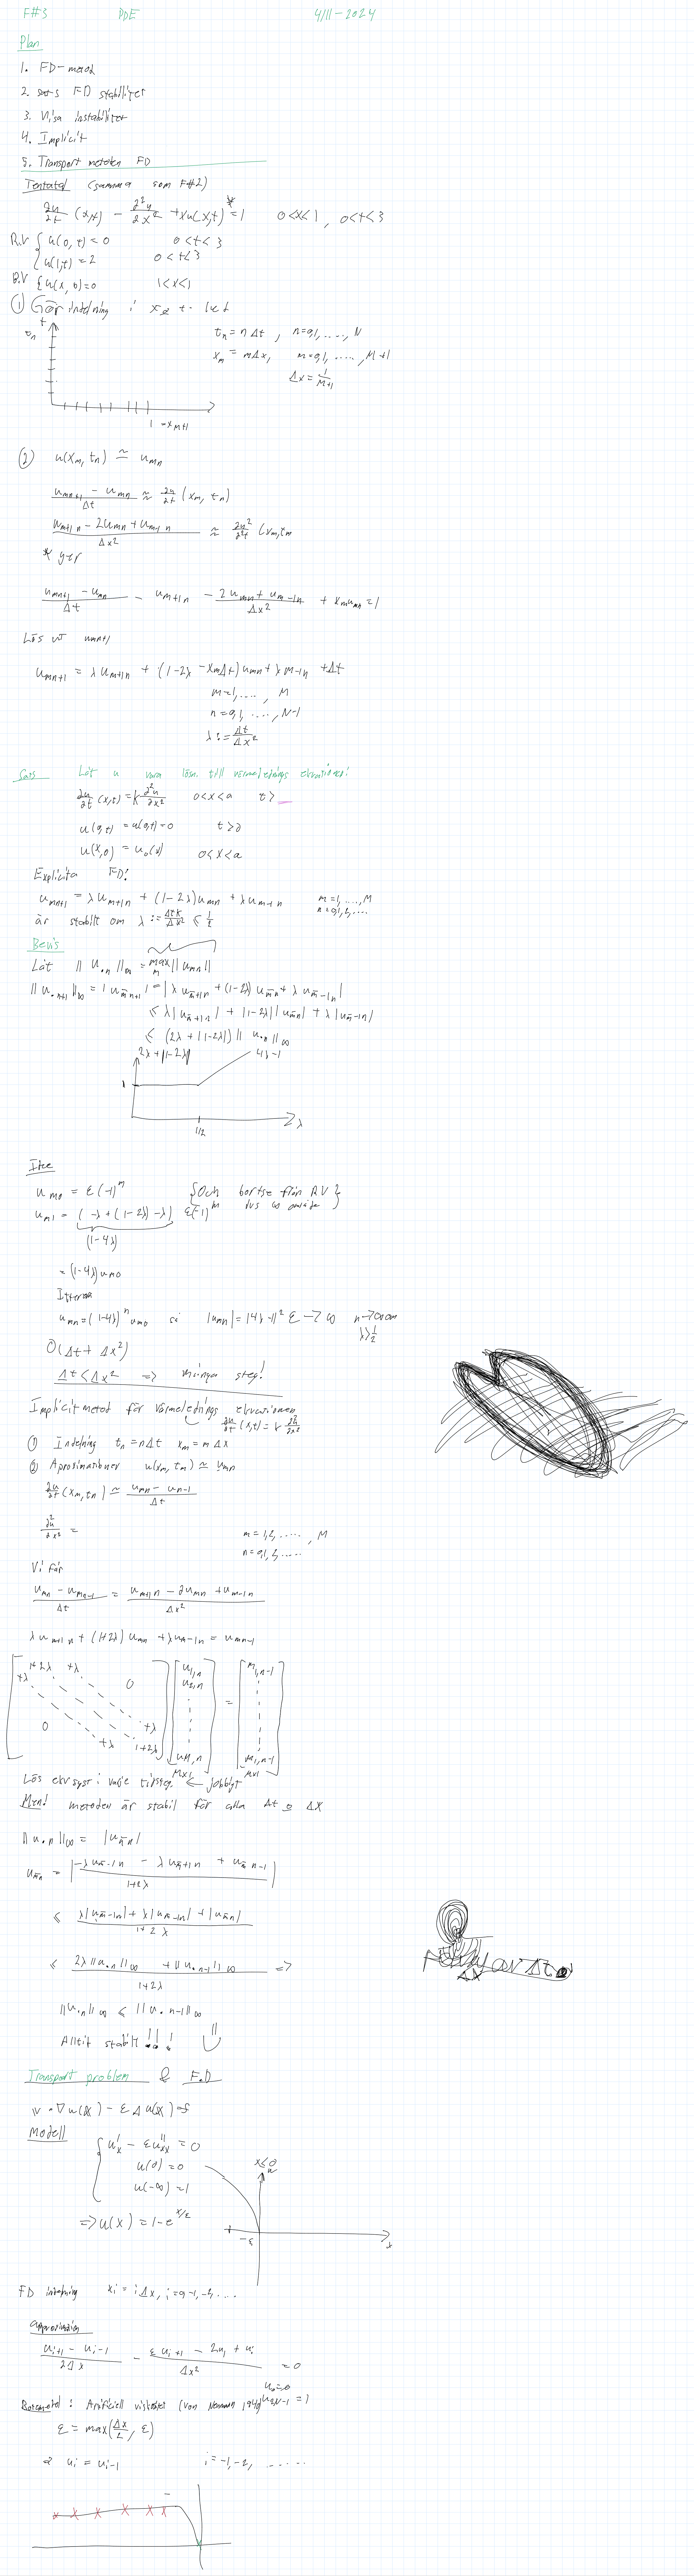 F#3 PDE 4/11-2024
Plan
1. FD-metod
2. sats FD stabilitet
3. Visa instabilitet
4. Implicit
5. Transport metoden FD
Tentatal (samma som F#2)
∂u/∂t (x,t) - ∂²u/∂x² + xu(x,t) =* 1 0<x<1, 0<t<3
R.V { u(0,t) = 0 0<t<3
u(1,t) = 2 0<t<3
B.V { u(x,0)=0 1<x<1
① Gör indelning i x & t-led
t
t_n = nΔt, n=0,1,....,N
x_m = mΔx, m=0,1,....,M+1
Δx = 1/(M+1)
1 = x_{M+1}
② u(x_m, t_n) ≃ u_{mn}
(u_{mn+1} - u_{mn})/Δt ≈ ∂u/∂t (x_m, t_n)
(u_{m+1 n} - 2u_{mn} + u_{m-1 n})/Δx² ≈ ∂u²/∂²t (x_m, t_m
* ger
(u_{mn+1} - u_{mn})/Δt - u_{m+1 n} - (2u_{mn} + u_{m-1n})/Δx² + x_m u_{mn} = 1
Lös ut u_{mn+1}
u_{mn+1} = λu_{m+1n} + (1-2λ - x_mΔt)u_{mn} + λ_{m-1n} + Δt
m=1,...., M
n=0,1,....,N-1
λ := Δt/Δx²
Sats Låt u vara lösn. till värmelednings ekvationen!
∂u/∂t (x,t) = k ∂²u/∂x² 0<x<a t>
u(0,t) = u(a,t) = 0 t>0
u(x,0) = u_0(x) 0<x<a
Explicita FD!
u_{mn+1} = λu_{m+1n} + (1-2λ)u_{mn} + λu_{m-1n} m=1,....,M
n=0,1,2,...
är stabilt om λ := Δtk/Δx² ≤ 1/2
Bevis
Låt ||u_{·n}||_∞ = max_m ||u_{mn}||
||u_{·n+1}||_∞ = |u_{m̄n+1}| = |λu_{m̄+1n} + (1-2λ)u_{m̄n} + λu_{m̄-1n}|
≤ λ|u_{m̄+1n}| + |1-2λ||u_{m̄n}| + λ|u_{m̄-1n}|
≤ (2λ + |1-2λ|) ||u_{·n}||_∞
2λ + |1-2λ| 4λ-1
1
1/2 λ
u_{m0} = ε(-1)^m {Och bortse från RV
u_{m1} = (-λ + (1-2λ) - λ) ε(-1)^m
(1-4λ)
= (1-4λ)u_{m0}
Iterera
u_{mn} = (1-4λ)^n u_{m0} så |u_{mn}| = |4λ-1|² ε → ∞ n→∞ om
λ>1/2
O(Δt + Δx²)
Δt < Δx² => många steg!
Implicit metod för värmelednings ekvationen
∂u/∂t (x,t) = k ∂²u/∂x²
① Indelning t_n = nΔt x_m = mΔx
② Aproximationer u(x_m, t_m) ≃ u_{mn}
∂u/∂t (x_m, t_n) ≃ (u_{mn} - u_{n-1})/Δt
∂²u/∂x² =
m=1,2,....., M
n=0,1,2,....
Vi får
(u_{mn} - u_{mn-1})/Δt = (u_{m+1n} - 2u_{mn} + u_{m-1n})/Δx²
λu_{m+1n} + (1+2λ)u_{mn} + λu_{m-1n} = u_{mn-1}
1+2λ +λ 0 u_{1,n} u_{1,n-1}
+λ u_{2,n}
=
0 +λ
+λ 1+2λ u_{M,n} u_{1,n-1}
M×1 M×1
Lös ekv.syst i varje tidssteg. ← jobbigt
Men! metoden är stabil för alla Δt & Δx
||u_{·n}||_∞ = |u_{m̄n}|
u_{m̄n} = |(-λu_{m̄-1n} - λu_{m̄+1n} + u_{m̄ n-1})/(1+2λ)|
≤ (λ|u_{m̄-1n}| + λ|u_{m-1n}| + |u_{m̄n}|)/(1+2λ)
≤ (2λ||u_{·n}||_∞ + ||u_{·n-1}||_∞)/(1+2λ) =>
||u_{·n}||_∞ ≤ ||u_{·n-1}||_∞
Alltit stabilt !!!
Transport problem & F.D
v·∇u(x) - εΔu(x) = f
Modell
{ u'_x - εu''_{xx} = 0 x≤0
u(0) = 0 u
u(-∞) = 1
=> u(x) = 1-e^{x/ε}
-ε x
FD indelning x_i = iΔx, i=0,-1,-2,....
approximation
(u_{i+1} - u_{i-1})/2Δx - (εu_{i+1} - 2u_i + u_i)/Δx² = 0
u_0=0
Botemedel: Artificiell viskositet (von Neumann
ε = max(Δx/2, ε)
=> u_i = u_{i-1} i=-1,-2, ......